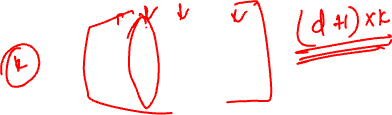 k
(d+1)×k